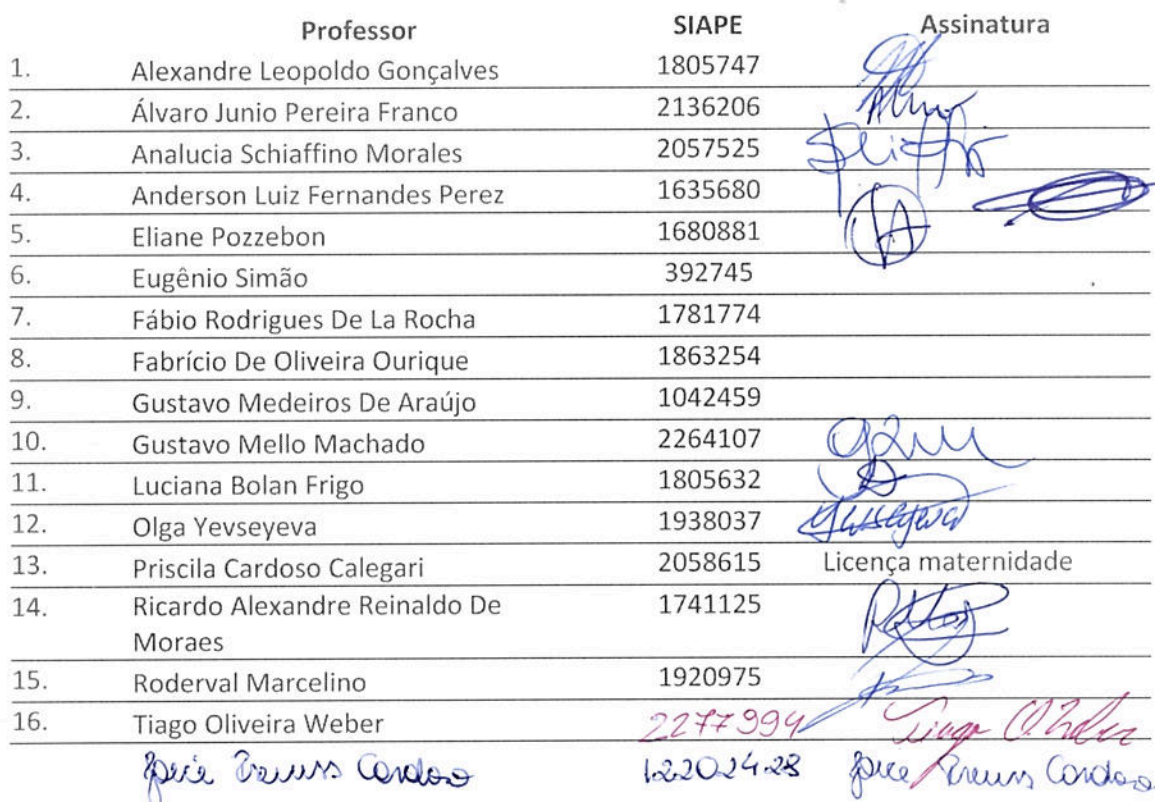 Professor SIAPE Assinatura
1. Alexandre Leopoldo Gonçalves 1805747
2. Álvaro Junio Pereira Franco 2136206
3. Analucia Schiaffino Morales 2057525
4. Anderson Luiz Fernandes Perez 1635680
5. Eliane Pozzebon 1680881
6. Eugênio Simão 392745
7. Fábio Rodrigues De La Rocha 1781774
8. Fabrício De Oliveira Ourique 1863254
9. Gustavo Medeiros De Araújo 1042459
10. Gustavo Mello Machado 2264107
11. Luciana Bolan Frigo 1805632
12. Olga Yevseyeva 1938037 Yevseyeva
13. Priscila Cardoso Calegari 2058615 Licença maternidade
14. Ricardo Alexandre Reinaldo De 1741125
Moraes
15. Roderval Marcelino 1920975
16. Tiago Oliveira Weber 2277994 Tiago O. Weber
Cardoso Cardoso